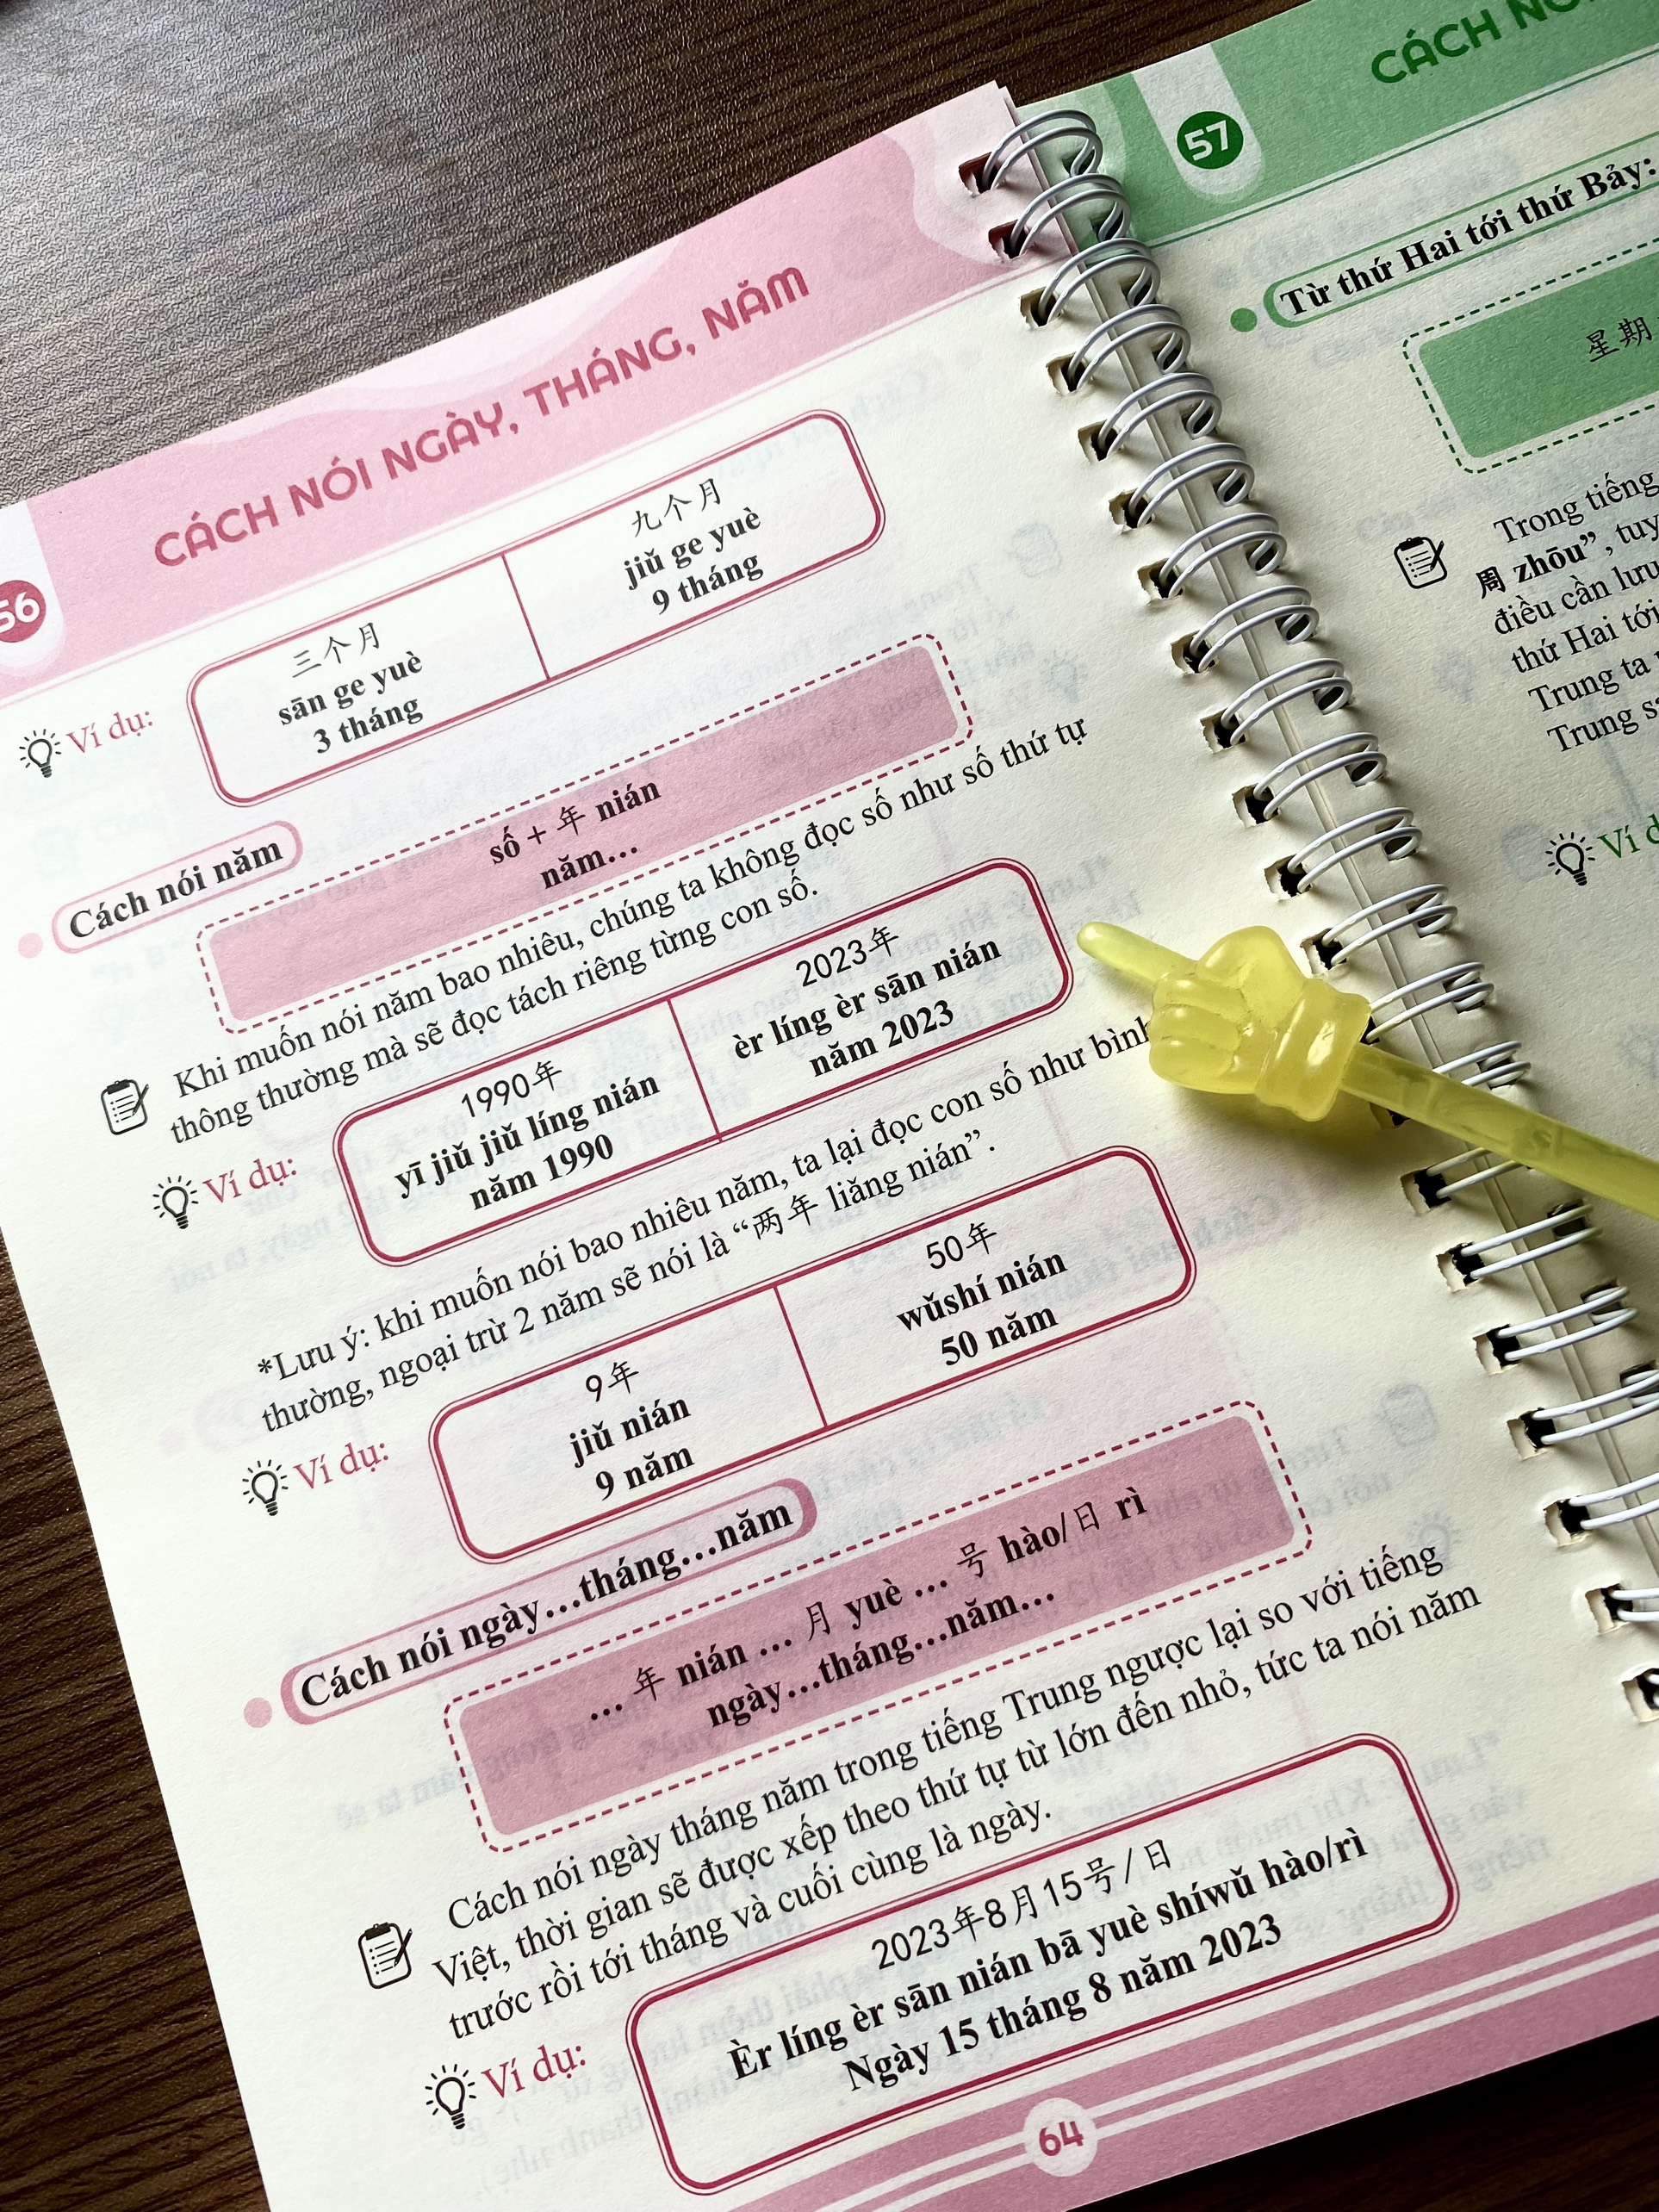 56
CÁCH NÓI NGÀY, THÁNG, NĂM
Ví dụ:
三个月
sān ge yuè
3 tháng
九个月
jiǔ ge yuè
9 tháng
Cách nói năm
số + 年 nián
năm...
Khi muốn nói năm bao nhiêu, chúng ta không đọc số như số thứ tự
thông thường mà sẽ đọc tách riêng từng con số.
Ví dụ:
1990年
yī jiǔ jiǔ líng nián
năm 1990
2023年
èr líng èr sān nián
năm 2023
*Lưu ý: khi muốn nói bao nhiêu năm, ta lại đọc con số như bình
thường, ngoại trừ 2 năm sẽ nói là “两年 liǎng nián”.
Ví dụ:
9年
jiǔ nián
9 năm
50年
wǔshí nián
50 năm
Cách nói ngày...tháng...năm
... 年 nián ... 月 yuè ... 号 hào/日 rì
ngày...tháng...năm...
Cách nói ngày tháng năm trong tiếng Trung ngược lại so với tiếng
Việt, thời gian sẽ được xếp theo thứ tự từ lớn đến nhỏ, tức ta nói năm
trước rồi tới tháng và cuối cùng là ngày.
Ví dụ:
2023年8月15号/日
Èr líng èr sān nián bā yuè shíwǔ hào/rì
Ngày 15 tháng 8 năm 2023
64
57
CÁCH
Từ thứ Hai tới thứ Bảy:
星期
Trong tiếng
周 zhōu”, tuy
điều cần lưu
thứ Hai tới
Trung ta
Trung
Ví